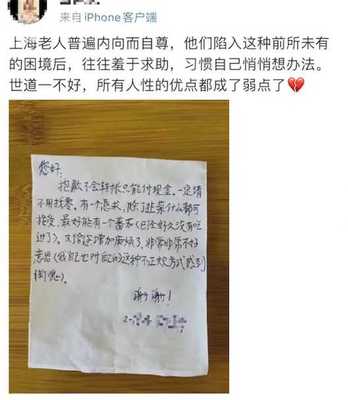 来自 iPhone客户端
上海老人普遍内向而自尊，他们陷入这种前所未有
的困境后，往往羞于求助，习惯自己悄悄想办法。
世道一不好，所有人性的优点都成了弱点了💔
您好：
抱歉不会转账只能付现金。一定请
不用找零。有一个恳求，除了韭菜什么都可
接受，最好能有一个番茄（已经好久没有吃
过了）。又给您增加麻烦了，非常非常不好
意思（我自己也对自己的这种不正大方式感到
惭愧）。
谢谢！